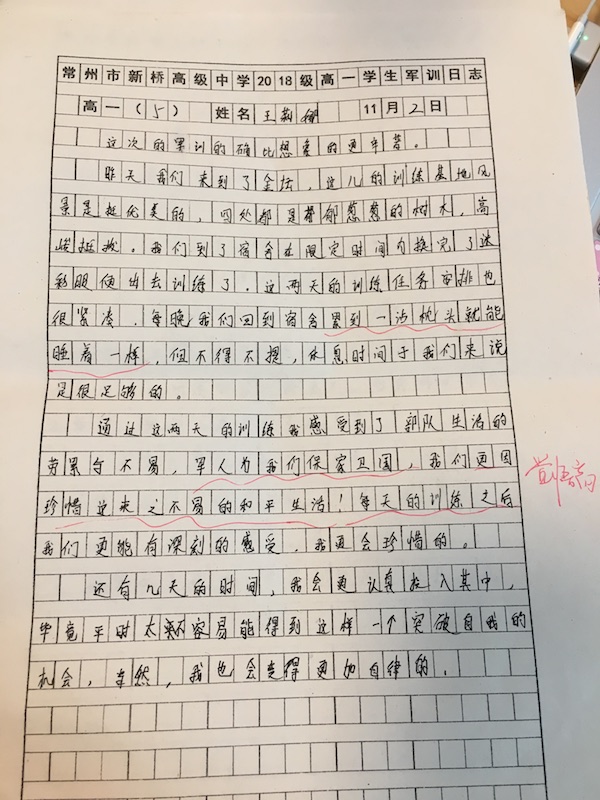 常州市新桥高级中学2018级高一学生军训日志
高一（5） 姓名 王莉娜 11月2日
这次的军训的确比想象的更辛苦。
昨天我们来到了金坛，这儿的训练基地风
景是挺优美的，四处都是郁郁葱葱的树木，高
峻挺拔。我们到了宿舍在限定时间内换完了迷
彩服便出去训练了。这两天的训练任务安排也
很紧凑，每晚我们回到宿舍累到一沾枕头就能
睡着一样，但不得不提，休息时间于我们来说
是很足够的。
通过这两天的训练我感受到了部队生活的
劳累与不易，军人为我们保家卫国，我们更因
珍惜这来之不易的和平生活！每天的训练之后
我们更能有深刻的感受，我更会珍惜的。
还有几天的时间，我会更认真投入其中，
毕竟平时太不容易能得到这样一个突破自我的
机会，当然，我也会变得更加自律的。